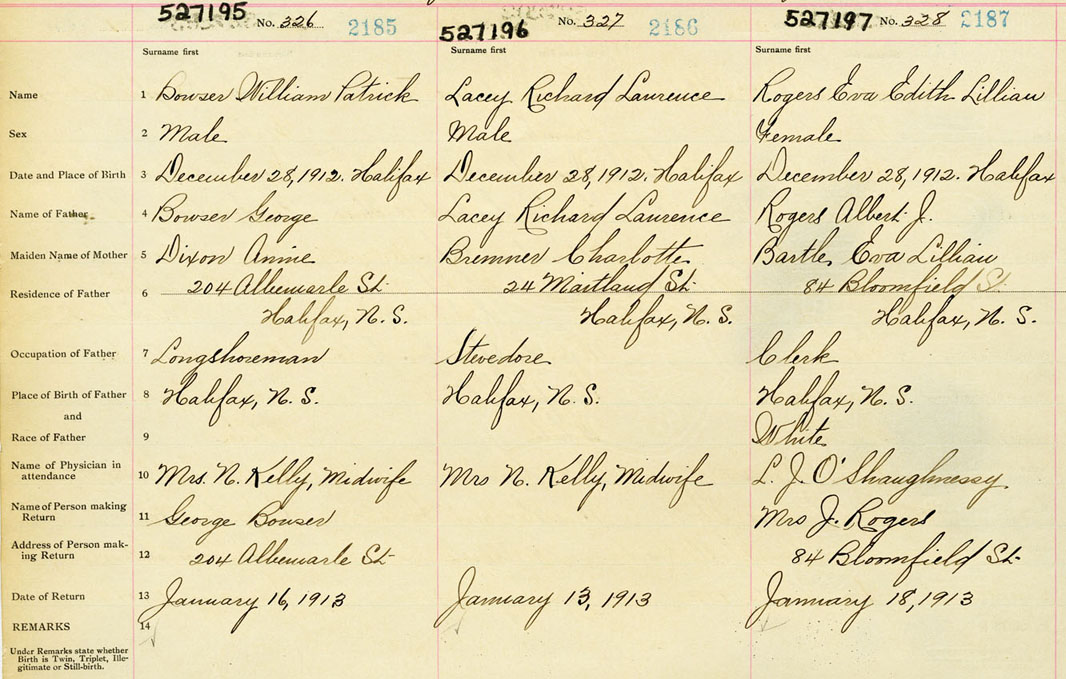 527195 No. 326 2185
527196 No. 327 2186
527197 No. 328 2187
Surname first Surname first Surname first
Name 1 Bowser William Patrick Lacey Richard Laurence Rogers Eva Edith Lillian
Sex 2 Male Male Female
Date and Place of Birth 3 December 28, 1912. Halifax December 28, 1912. Halifax December 28, 1912. Halifax
Name of Father 4 Bowser George Lacey Richard Laurence Rogers Albert J.
Maiden Name of Mother 5 Dixon Annie Bremner Charlotte Bartle, Eva Lillian
Residence of Father 6 204 Albemarle St. 24 Maitland St. 84 Bloomfield St.
Halifax, N. S. Halifax, N. S. Halifax, N. S.
Occupation of Father 7 Longshoreman Stevedore Clerk
Place of Birth of Father 8 Halifax, N. S. Halifax, N. S. Halifax, N. S.
and
Race of Father 9 White
Name of Physician in
attendance 10 Mrs. N. Kelly, Midwife Mrs N. Kelly, Midwife L. J. O'Shaughnessy
Name of Person making
Return 11 George Bowser Mrs J. Rogers
Address of Person mak-
ing Return 12 204 Albemarle St 84 Bloomfield St.
Date of Return 13 January 16, 1913 January 13, 1913 January 18, 1913
REMARKS 14
Under Remarks state whether
Birth is Twin, Triplet, Ille-
gitimate or Still-birth.